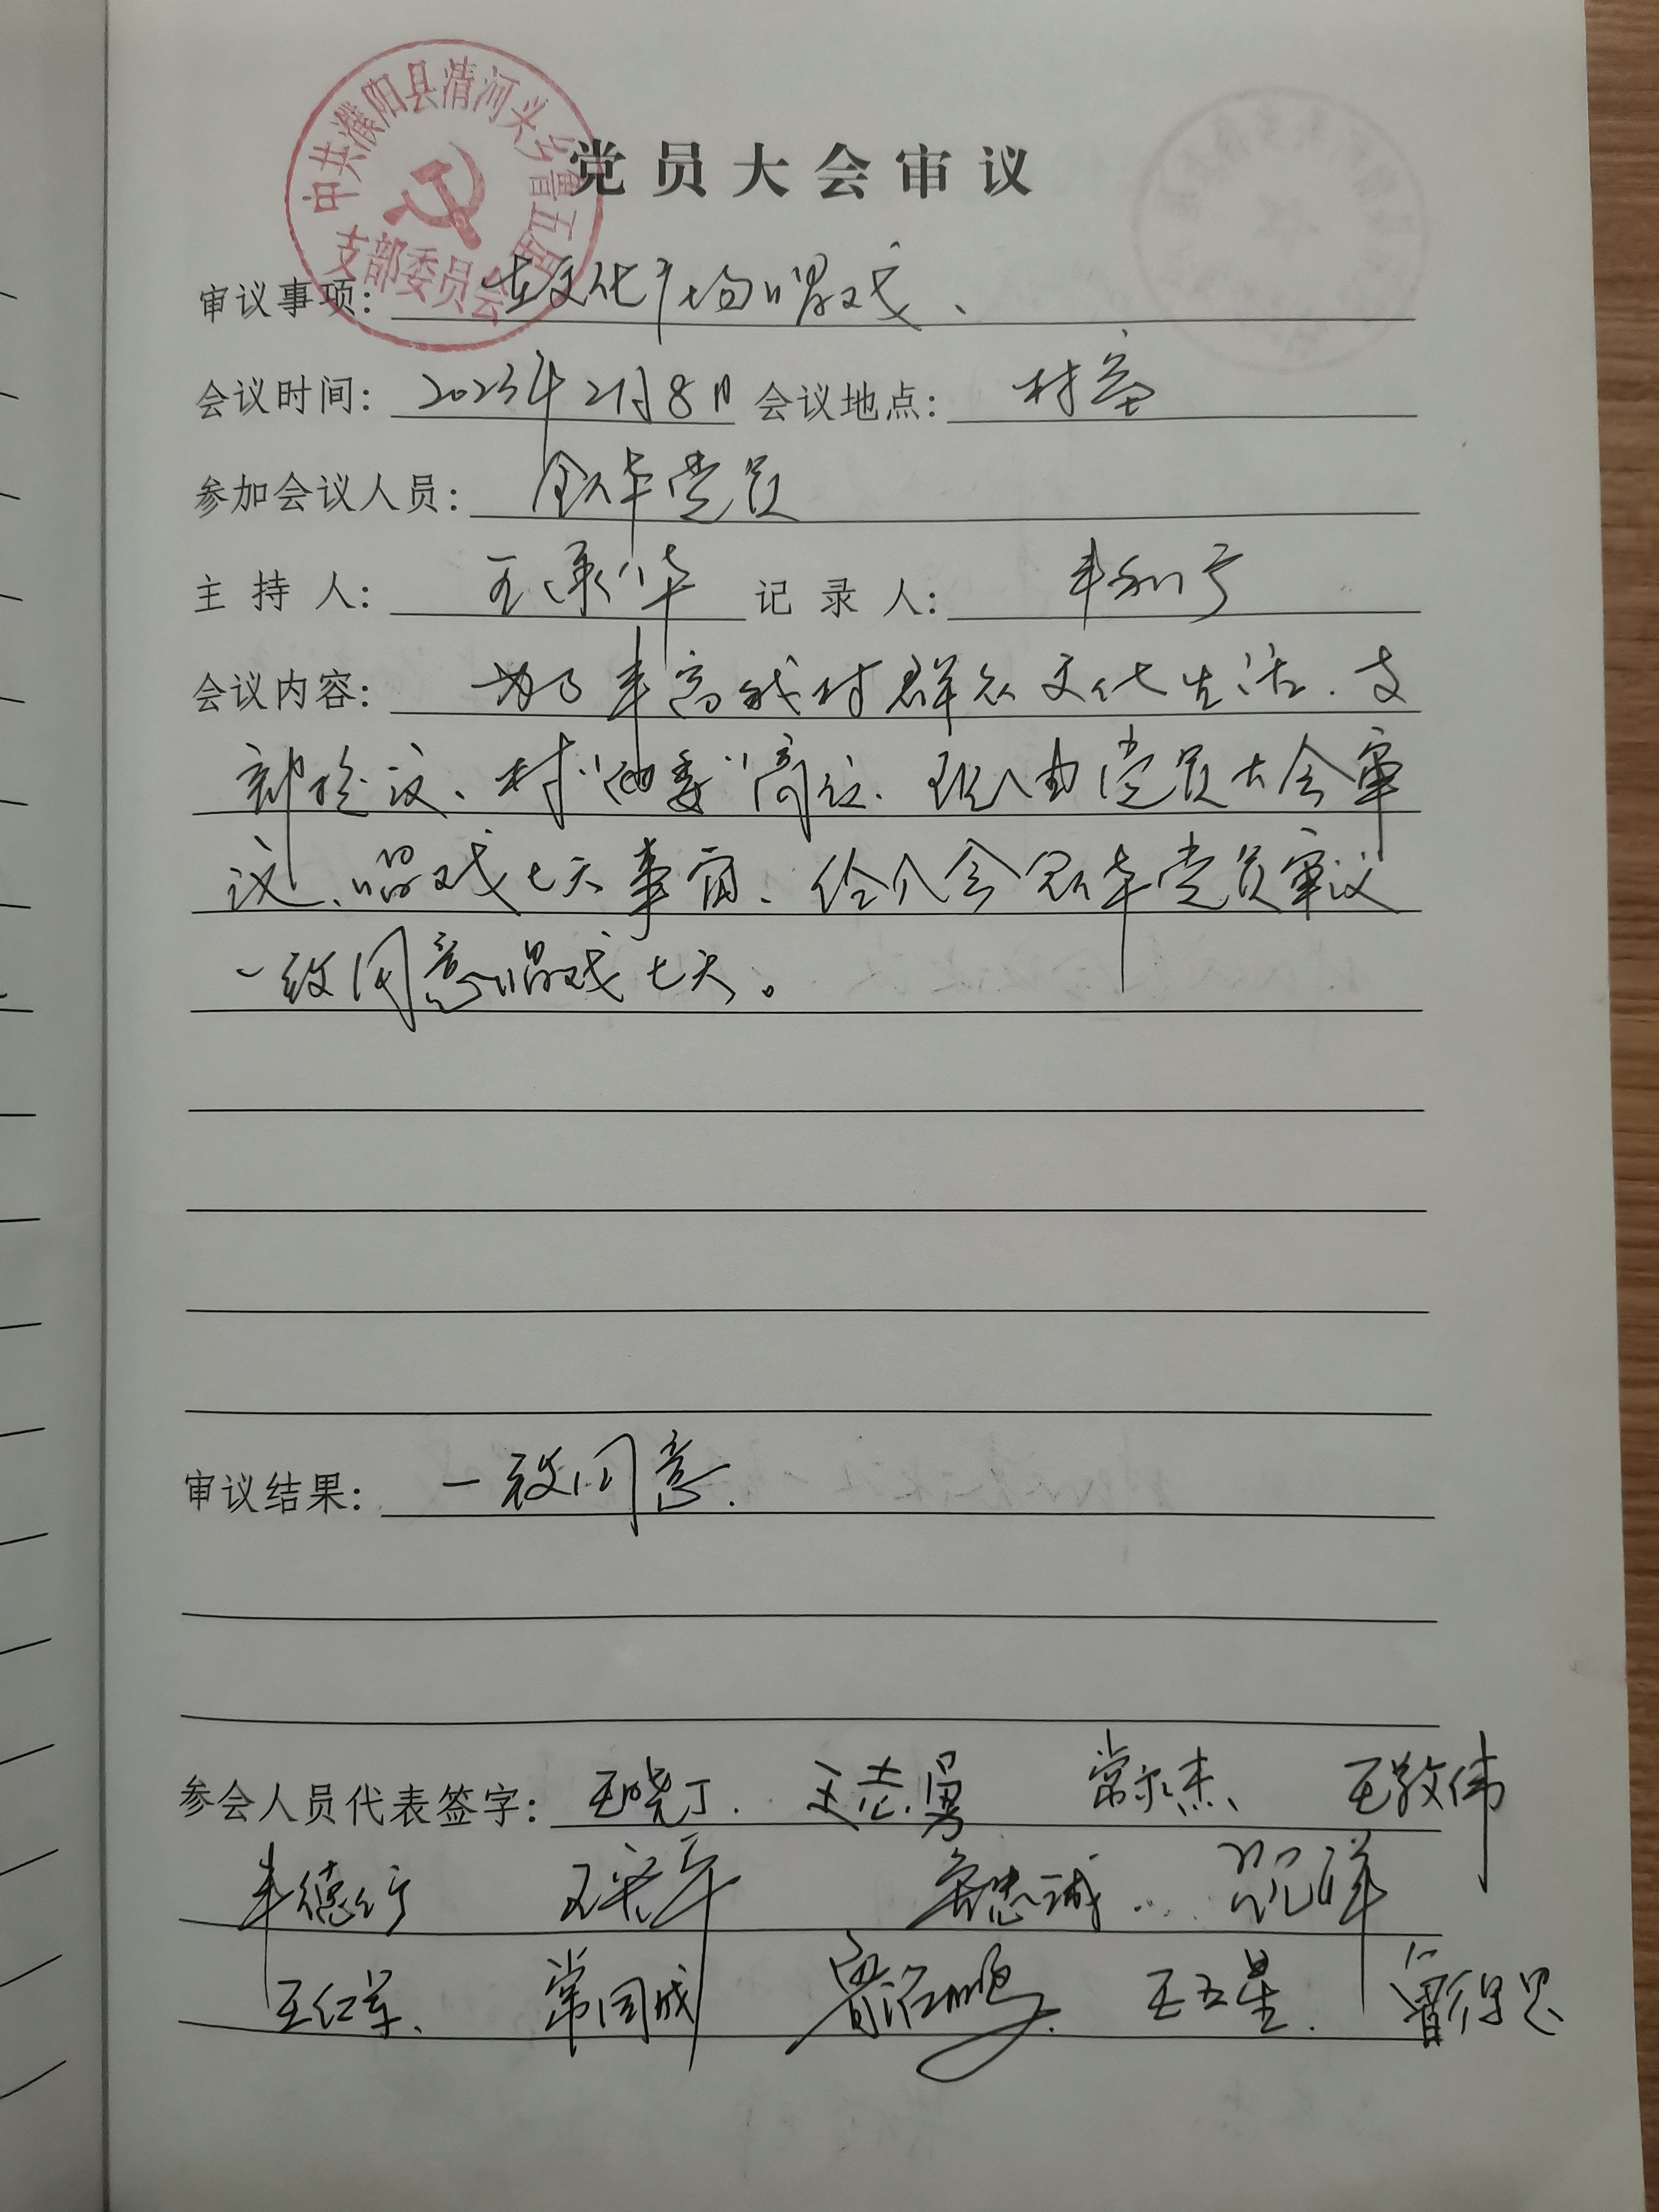 中共濮阳县清河头乡鲁五星
支部委员会
党员大会审议
审议事项: 在文化广场唱戏、
会议时间: 2023年2月8日 会议地点: 村室
参加会议人员: 全体党员
主持人: 王承华 记录人:
会议内容: 为了丰富我村群众文化生活.支
部提议、村"两委"商议.现由党员大会审
议、唱戏七天事宜.经大会全体党员审议
一致同意唱戏七天。
审议结果: 一致同意.
参会人员代表签字: 王晓丁. 王志勇 王敬伟
王红军、 常同成 王五星.